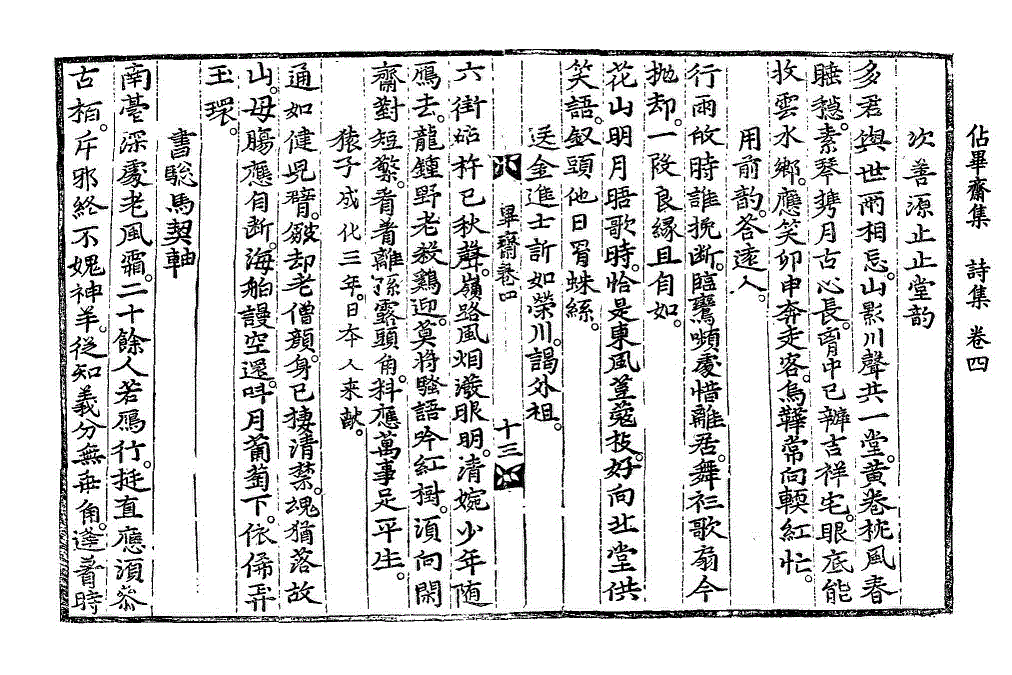 佔畢齋集　詩集　卷四
次善源止止堂韵
多君與世兩相忘。山影川聲共一堂。黃卷枕風春
睡穩。素琴携月古心長。胷中已辦吉祥宅。眼底能
收雲水鄉。應笑卯申奔走客。烏鞾常向輭紅忙。
用前韵。答遠人。
行雨收時誰挽斷。臨鸞嚬處惜離居。舞衫歌扇今
抛却。一段良緣且自如。
花山明月晤歌時。恰是東風荳蔻枝。好向北堂供
笑語。釵頭他日罥蛛絲。
送金進士訢如榮川。謁外祖。
畢齋卷四
十三
六街砧杵已秋聲。嶺路風烟潑眼明。清婉少年随
鴈去。龍鍾野老殺鷄迎。莫將騷語吟紅樹。須向閑
齋對短檠。看着離孫露頭角。料應萬事足平生。
猿子成化三年。日本人来献。
通如健皃臂。皺却老僧顔。身已棲清禁。魂猶落故
山。母膓應自断。海舶謾空還。呌月葡萄下。依俙弄
玉環。
書驄馬契軸
南臺深處老風霜。二十餘人若鴈行。挺直應須叅
古栢。斥邪終不媿神羊。從知義分無毎角。蓬着時